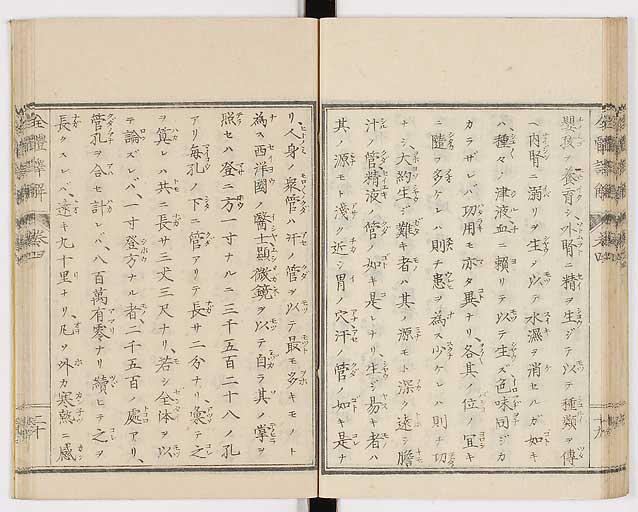 全體譯解 卷四 十九
嬰孩ヲ養育シ、外腎ニ精ヲ生ジテ以テ種類ヲ傳
ヘ內腎ニ溺リヲ生ジ以テ水濕ヲ消セルガ如キ
ハ種々ノ津液血ニ賴リテ以テ生ズ、色味同ジカ
カラザレバ功用モ亦タ異ナリ、各其ノ位ノ宜キ
ニ隨ヲ多ケレハ則チ患ヲ為ス少ケレハ則チ功
ナシ、大約生ジ難キ者ハ其ノ源モト深ク遠シ膽
汁ノ管精液ノ管ノ如キ是レナリ、生ジ易キ者ハ
其ノ源モト淺ク近シ胃ノ穴汗ノ管ノ如キ是ナ
リ、人身ノ衆管ハ汗ノ管ヲ以テ最モ多キモノト
為ス西洋國ノ醫士顯微鏡ヲ以テ自ラ其ノ掌ヲ
照セハ登ニ方一寸ナルニ三千五百二十八ノ孔
アリ每孔ノ下ニ管アリテ長サ二分ナリ、衆テ之
ヲ算レハ共ニ長サ三丈三尺ナリ、若シ全体ヲ以
テ論ズレバ、一寸登方ナル者二千五百ノ處アリ、
管孔ヲ合セ計レバ、八百萬有零ナリ續ヒテ之ヲ
長クスレバ、遠キ九十里ナリ、凡ソ外カ寒熱ニ感
全體譯解 卷四 二十